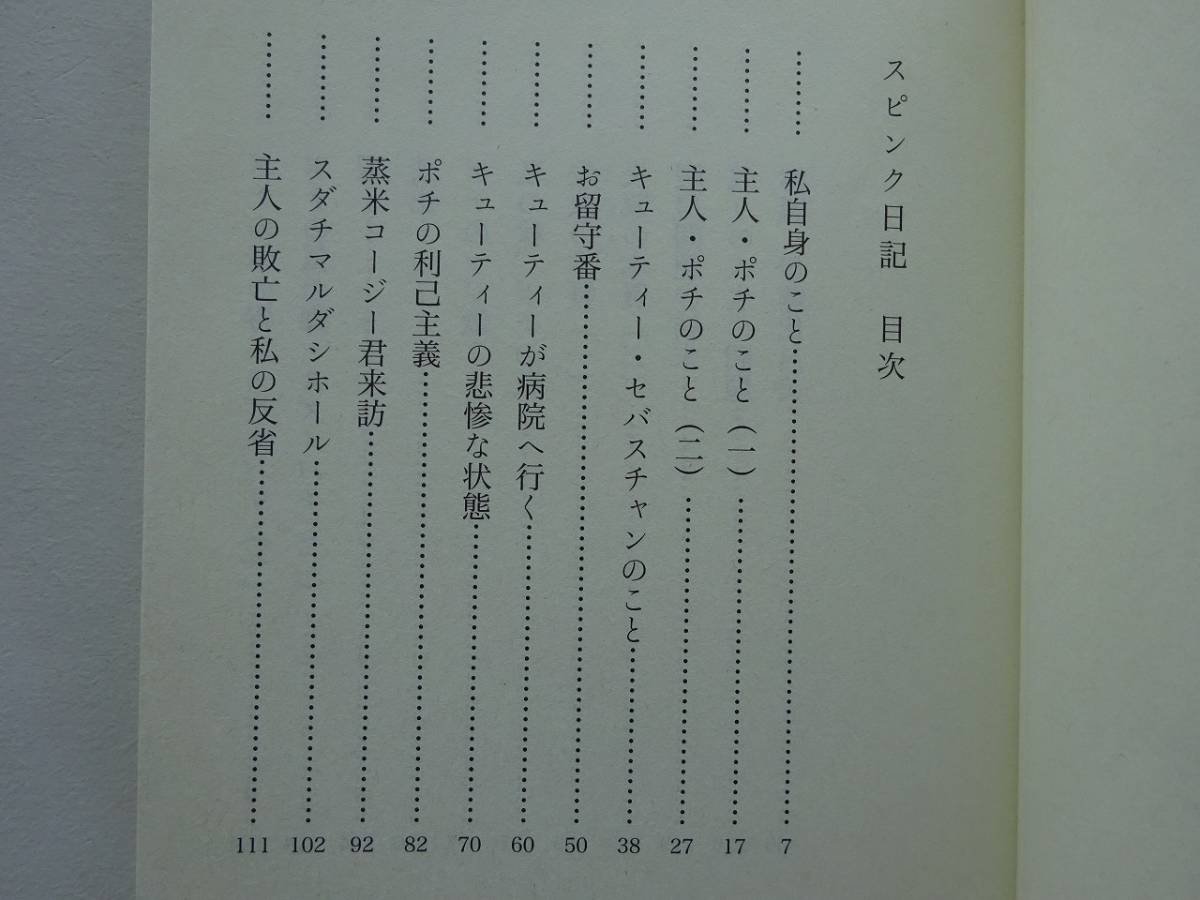 スピンク日記　目次
………私自身のこと………7
………主人・ポチのこと（一）………17
………主人・ポチのこと（二）………27
………キューティー・セバスチャンのこと………38
………お留守番………50
………キューティーが病院へ行く………60
………キューティーの悲惨な状態………70
………ポチの利己主義………82
………蒸米コージー君来訪………92
………スダチマルダシホール………102
………主人の敗亡と私の反省………111